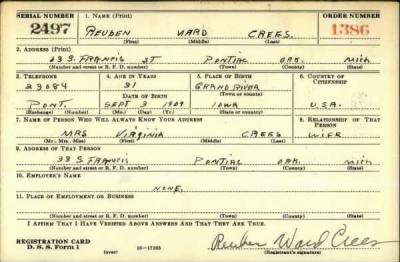 SERIAL NUMBER 1. NAME (Print) ORDER NUMBER
2497 REUBEN WARD CREES. 1386
(First) (Middle) (Last)
2. ADDRESS (Print)
33 S. FRANCIS ST PONTIAC OAK. MICH
(Number and street or R. F. D. number) (Town) (County) (State)
3. TELEPHONE 4. AGE IN YEARS 5. PLACE OF BIRTH 6. COUNTRY OF CITIZENSHIP
23084 31 GRAND RIVER
DATE OF BIRTH (Town or county)
PONT. SEPT 3 1909 IOWA U.S.A.
(Exchange) (Number) (Mo.) (Day) (Yr.) (State or country)
7. NAME OF PERSON WHO WILL ALWAYS KNOW YOUR ADDRESS 8. RELATIONSHIP OF THAT PERSON
MRS VIRGINIA CREES WIFE
(Mr., Mrs., Miss) (First) (Middle) (Last)
9. ADDRESS OF THAT PERSON
33 S. FRANCIS PONTIAC OAK. MICH
(Number and street or R. F. D. number) (Town) (County) (State)
10. EMPLOYER'S NAME
NONE.
11. PLACE OF EMPLOYMENT OR BUSINESS
(Number and street or R. F. D. number) (Town) (County) (State)
I AFFIRM THAT I HAVE VERIFIED ABOVE ANSWERS AND THAT THEY ARE TRUE.
REGISTRATION CARD Reuben Ward Crees
D. S. S. Form 1 (over) (Registrant's signature)